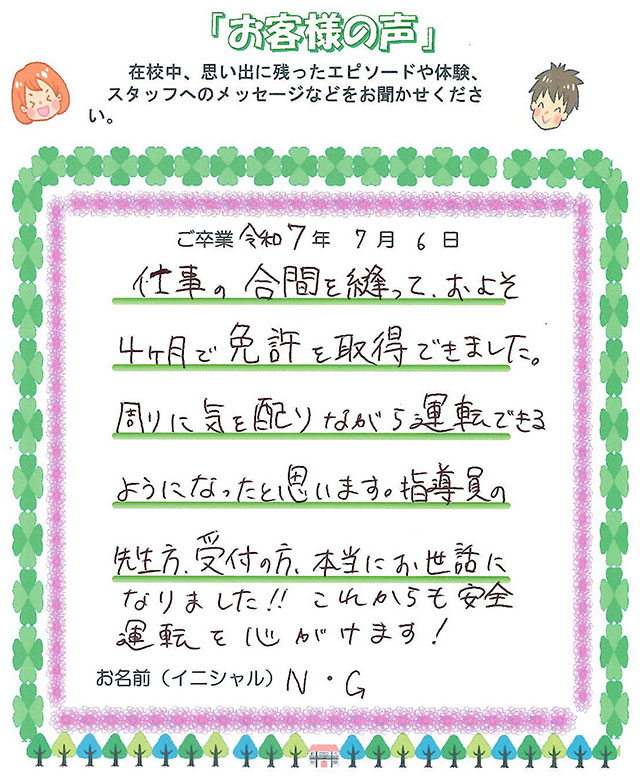 「お客様の声」
在校中、思い出に残ったエピソードや体験、
スタッフへのメッセージなどをお聞かせくださ
い。
ご卒業 令和7年 7月 6日
仕事の合間を縫って、およそ
4ヶ月で免許を取得できました。
周りに気を配りながら運転できる
ようになったと思います。指導員の
先生方、受付の方、本当にお世話に
なりました!! これからも安全
運転を心がけます!
お名前（イニシャル） N・G